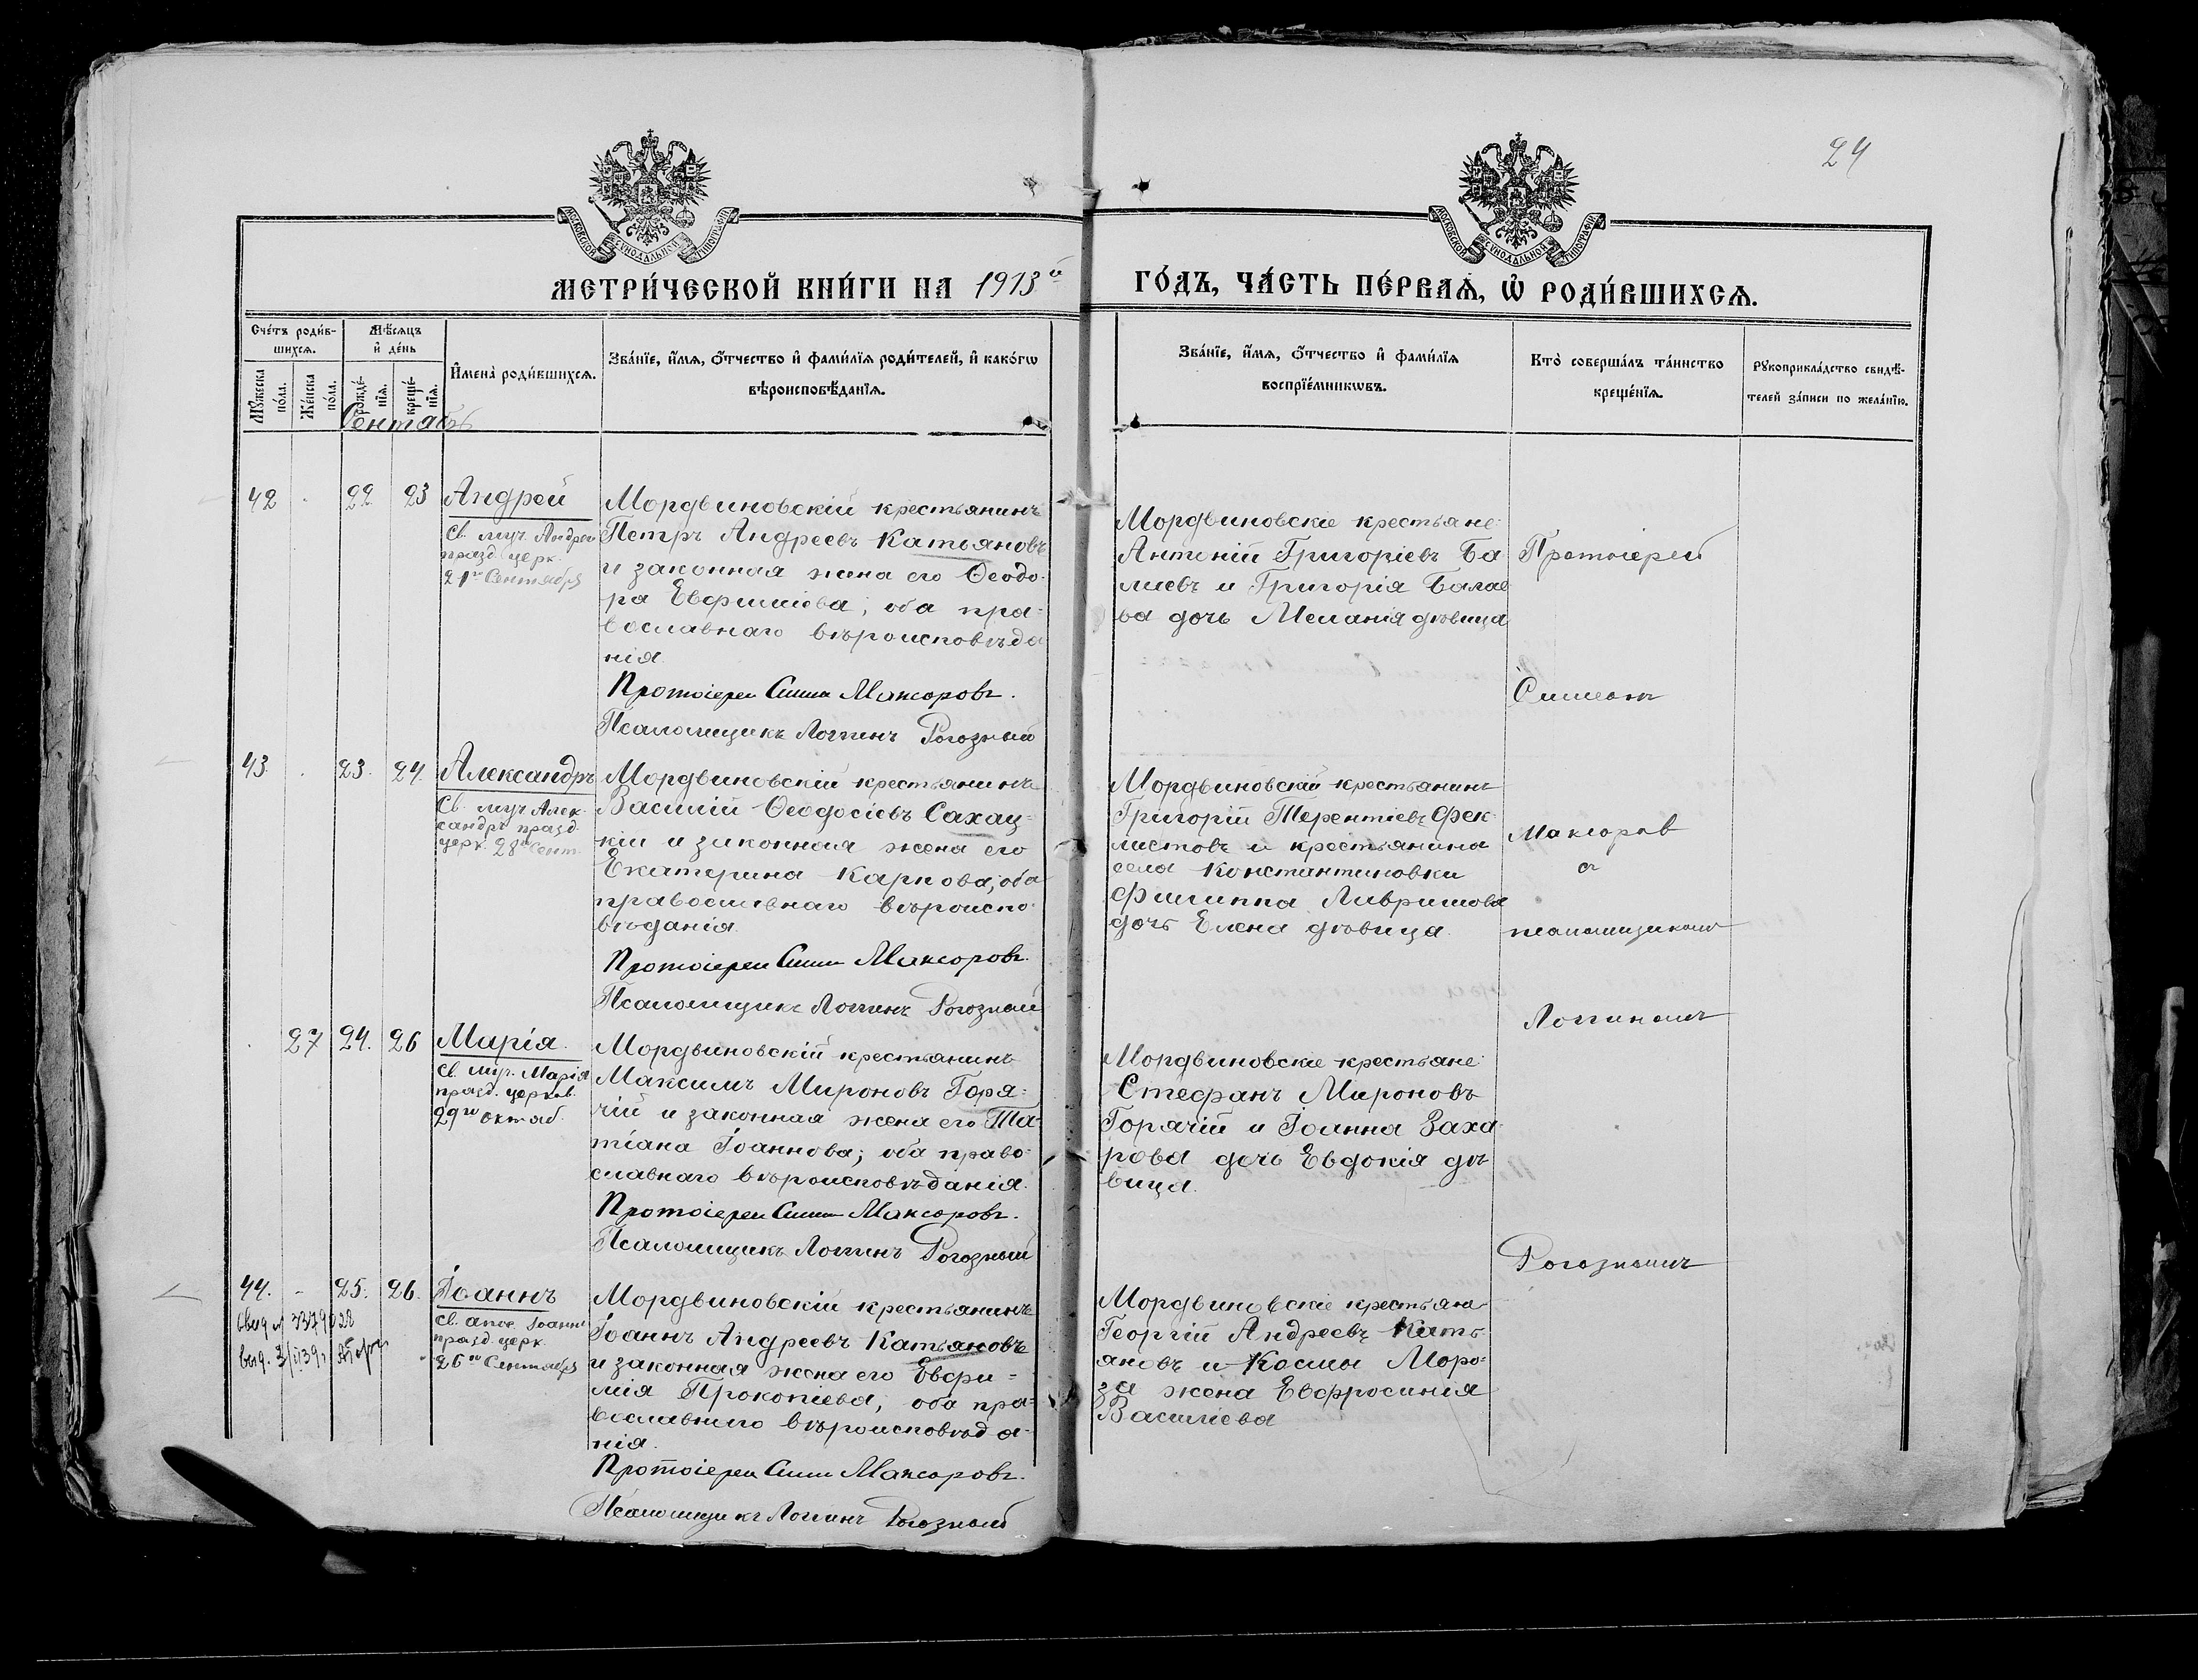 24
МОСКОВСКОЙ СѴНОДАЛЬНОЙ ТИПОГРАФІИ
МОСКОВСКОЙ СѴНОДАЛЬНОЙ ТИПОГРАФІИ
МЕТРИ́ЧЕСКОЙ КНИ́ГИ НА 1913й ГО́ДЪ, ЧА́СТЬ ПЕ́РВАѦ, Ѡ҆ РОДИ́ВШИХСѦ.
Сче́тъ роди́в-
шихсѧ.
Мѣ́сѧцъ
и҆ де́нь
Мꙋ́жеска
по́ла.
Же́нска
по́ла.
рожде́-
нїѧ.
креще́-
нїѧ.
И҆мена̀ роди́вшихсѧ.
Зва́нїе, и҆́мѧ, ѻ҆́тчество и҆ фами́лїѧ роди́телей, и҆ како́гѡ
вѣроисповѣ́данїѧ.
Зва́нїе, и҆́мѧ, ѻ҆́тчество и҆ фами́лїѧ
воспрїе́мникѡвъ.
Кто̀ соверша́лъ та́инство
креще́нїѧ.
Рꙋкоприкла́дство свидѣ́-
телей за́писи по жела́нїю.
Сентябрь
42 . 22 23 Андрей
Св. муч. Андрей
празд. церк.
21го Сентября
Мордвиновскій крестьянинъ
Петръ Андреевъ Катьяновъ
и законная жена его Ѳеодо-
ра Евфиміева; оба пра-
вославнаго вѣроисповѣда
нія.
Протоіерей Симе Максоровъ.
Псаломщикъ Логгинъ Рогозный
Мордвиновскіе крестьяне:
Антоній Григоріевъ Ба
лаевъ и Григорія Балае
ва дочь Меланія дѣвица
Протоіерей
Симеонъ
43. . 23. 24. Александръ
Св. муч. Алек-
сандръ празд.
церк. 28го Сент.
Мордвиновскій крестьянинъ
Василій Ѳеодосіевъ Сахац-
кій и законная жена его
Екатерина Карпова; оба
православнаго вѣроиспо-
вѣданія.
Протоіерей Симе Максоровъ.
Псаломщикъ Логгинъ Рогозный
Мордвиновскій крестьянинъ
Григорій Терентіевъ Фек-
листовъ и крестьянина
села Константиновки
Филиппа Лавришова
дочь Елена дѣвица.
Максоров
съ
псаломщикомъ
Логгиномъ
. 27 24. 26 Марія.
Св. муч. Марія
празд. церков.
29го октяб.
Мордвиновскій крестьянинъ
Максимъ Мироновъ Горя-
чій и законная жена его Та-
тіана Іоаннова; оба право-
славнаго вѣроисповѣданія.
Протоіерей Симе Максоровъ.
Псаломщикъ Логгинъ Рогозный
Мордвиновскіе крестьяне:
Стефанъ Мироновъ
Горячій и Іоанна Заха-
рова дочь Евдокія дѣ
вица.
Рогознымъ
44. - 25. 26. Іоаннъ
Св. апос. Іоаннъ
празд. церк.
26го Сентября
Мордвиновскій крестьянинъ
Іоаннъ Андреевъ Катьяновъ
и законная жена его Евфи-
мія Прокопіева; оба пра-
вославнаго вѣроисповѣда-
нія.
Протоіерей Симе Максоровъ.
Псаломщикъ Логгинъ Рогозный
Мордвиновскіе крестьяне
Георгій Андреевъ Кать-
яновъ и Космы Моро-
за жена Евфросинія
Василіева